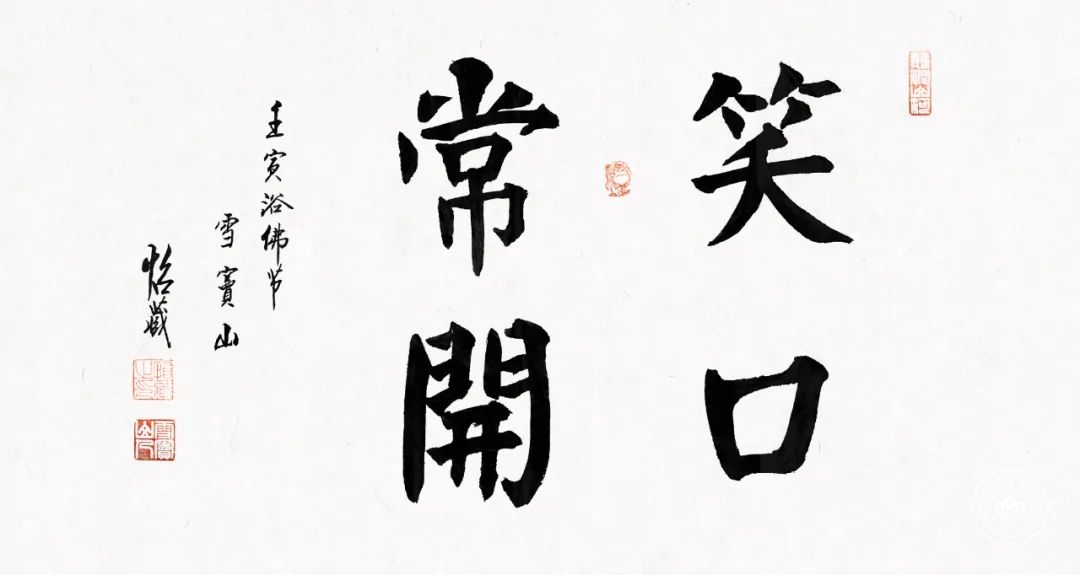 笑口
常開
壬寅浴佛节
雪竇山
怡藏